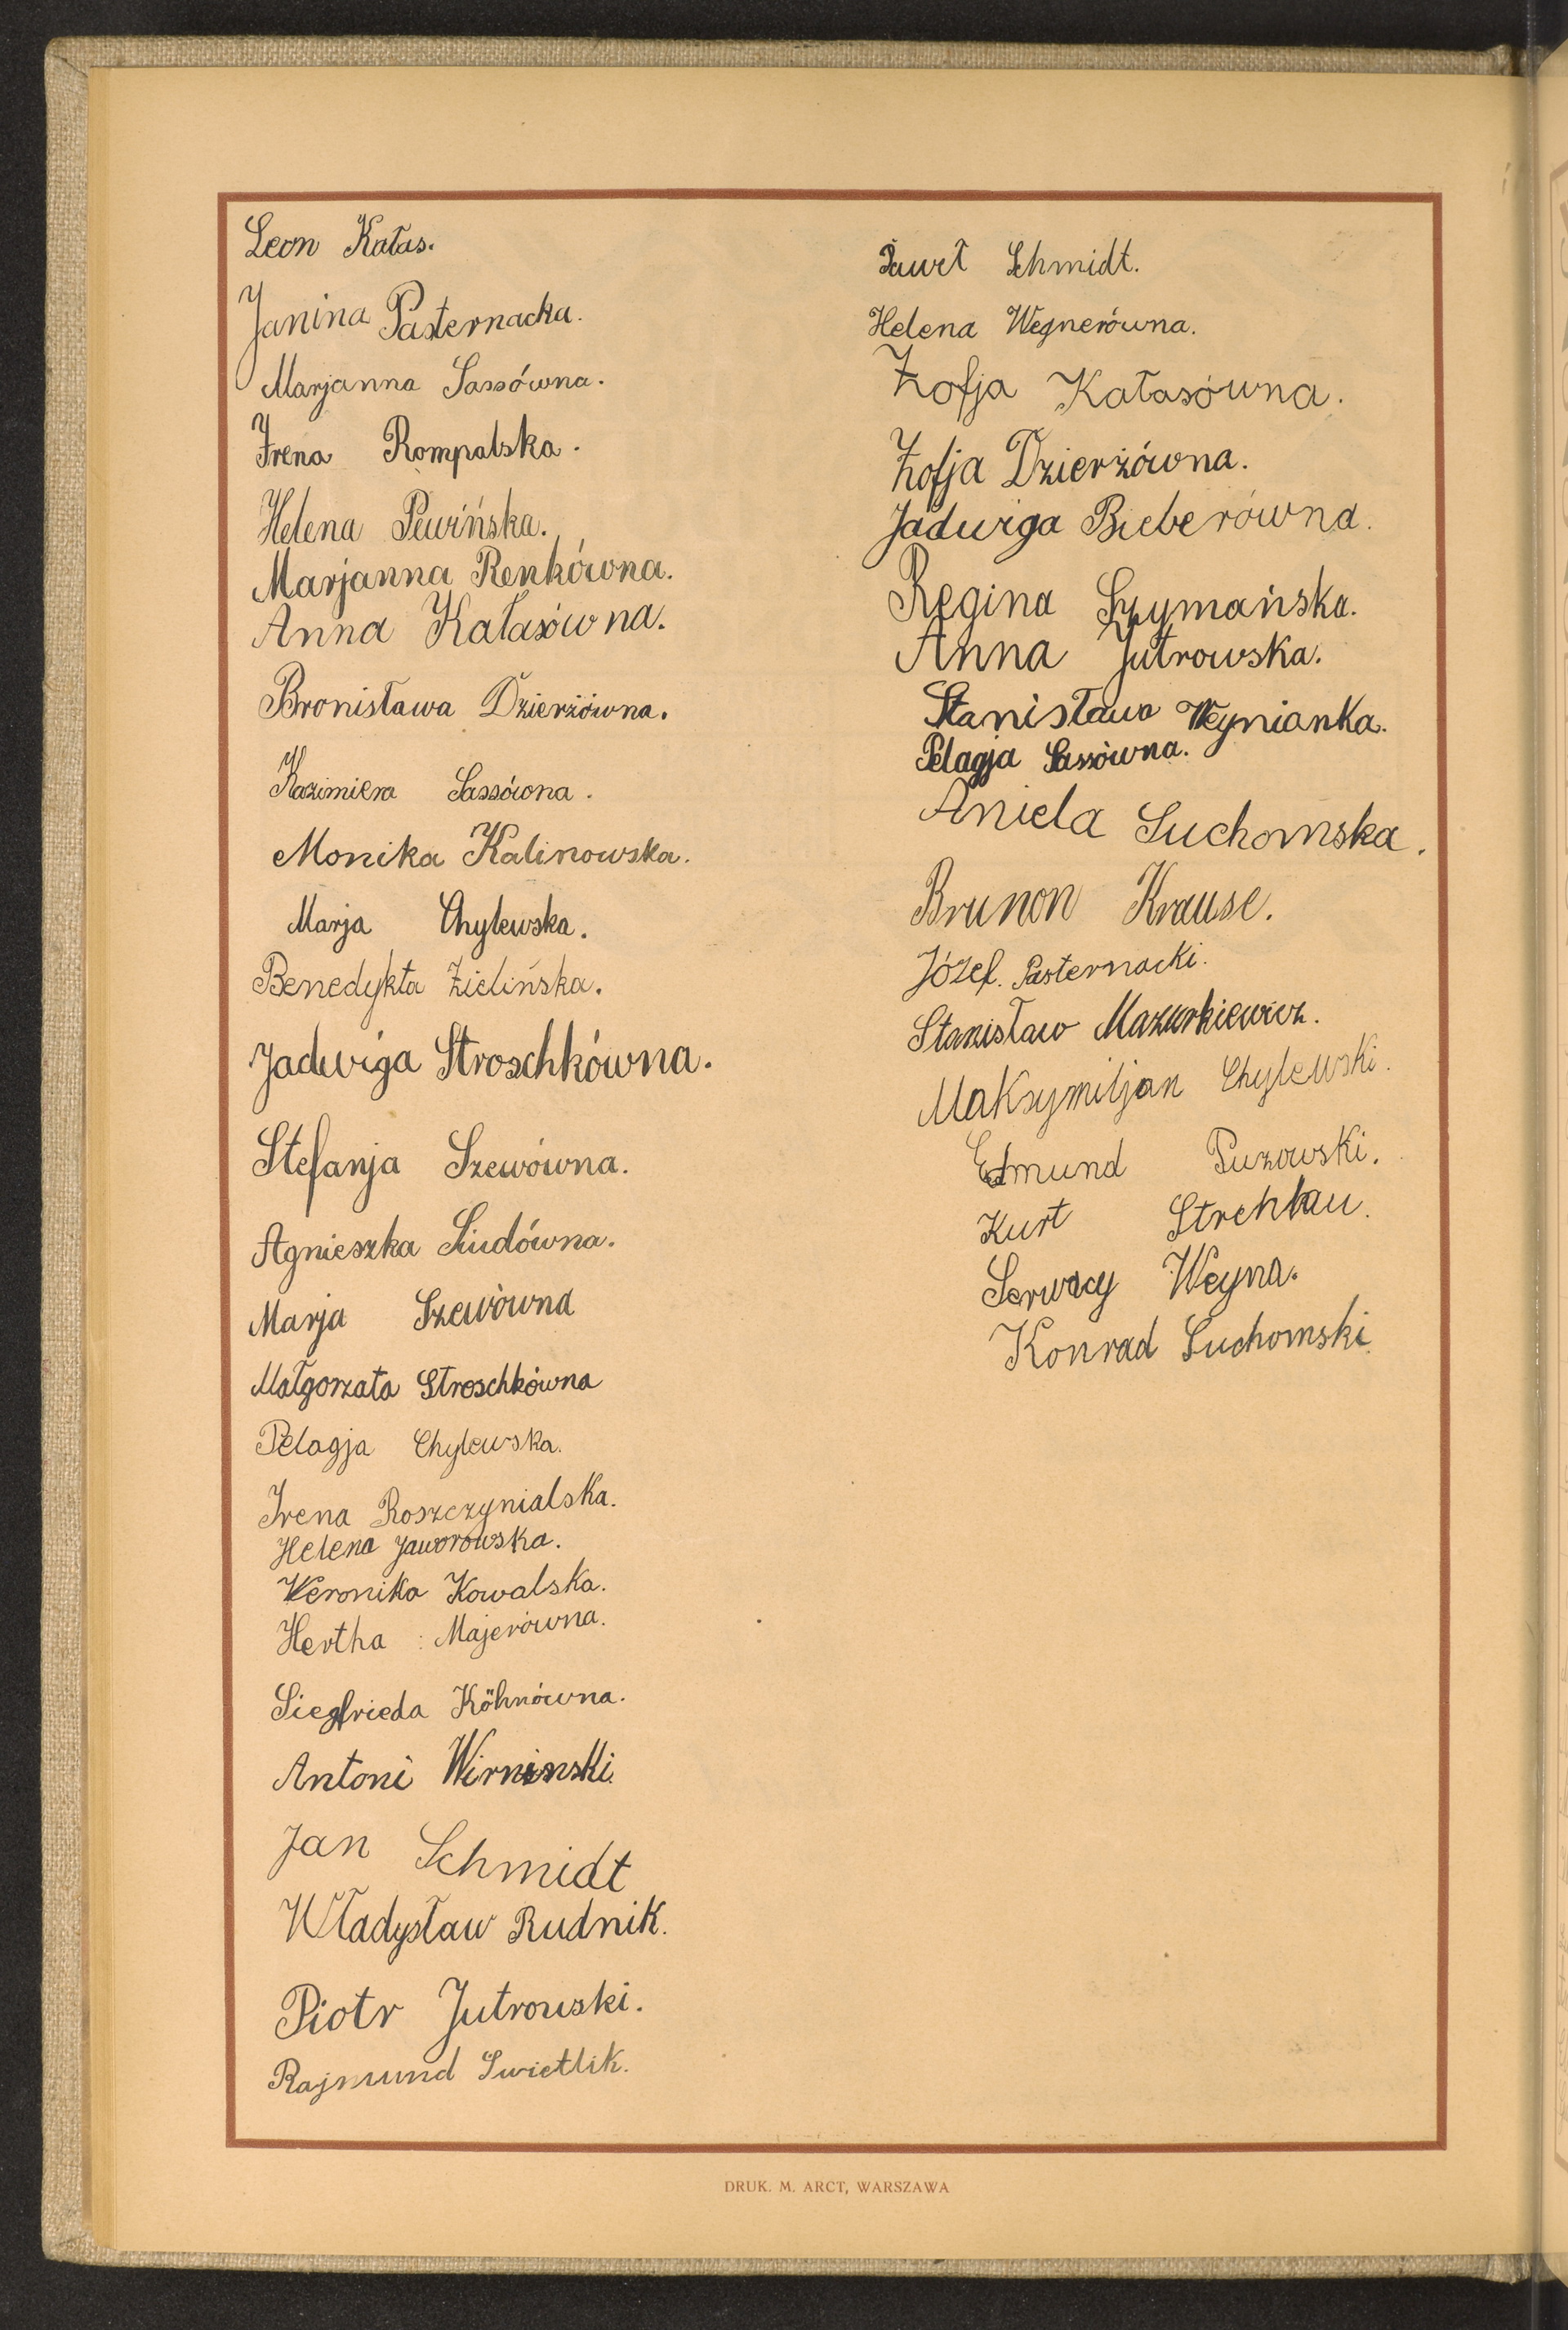 Leon Kałas.
Janina Pasternacka.
Marjanna Sassówna.
Irena Rompalska.
Helena Pewińska.
Marjanna Renkówna.
Anna Kałasówna.
Bronisława Dzierżówna.
Kazimiera Sassówna.
Monika Kalinowska.
Marja Chylewska.
Benedykta Zielińska.
Jadwiga Stroschkówna.
Stefanja Szewówna.
Agnieszka Siudówna.
Marja Szewówna
Małgorzata Stroschkówna
Pelagja Chylewska.
Irena Roszczynialska.
Helena Jaworowska.
Weronika Kowalska.
Hertha Majerówna.
Siegfrieda Köhnówna.
Antoni Wirninski.
Jan Schmidt
Władysław Rudnik.
Piotr Jutrowski.
Rajmund Swietlik.
Paweł Schmidt.
Helena Wegnerówna.
Zofja Kałasówna.
Zofja Dzierżówna.
Jadwiga Bieberówna.
Regina Szymańska.
Anna Jutrowska.
Stanisława Weynianka.
Pelagja Sassówna.
Aniela Suchomska.
Brunon Krause.
Józef. Pasternacki.
Stanisław Mazurkiewicz.
Maksymiljan Chylewski.
Edmund Puzowski.
Kurt Strehlau.
Serwacy Weyna.
Konrad Suchomski.
DRUK. M. ARCT, WARSZAWA